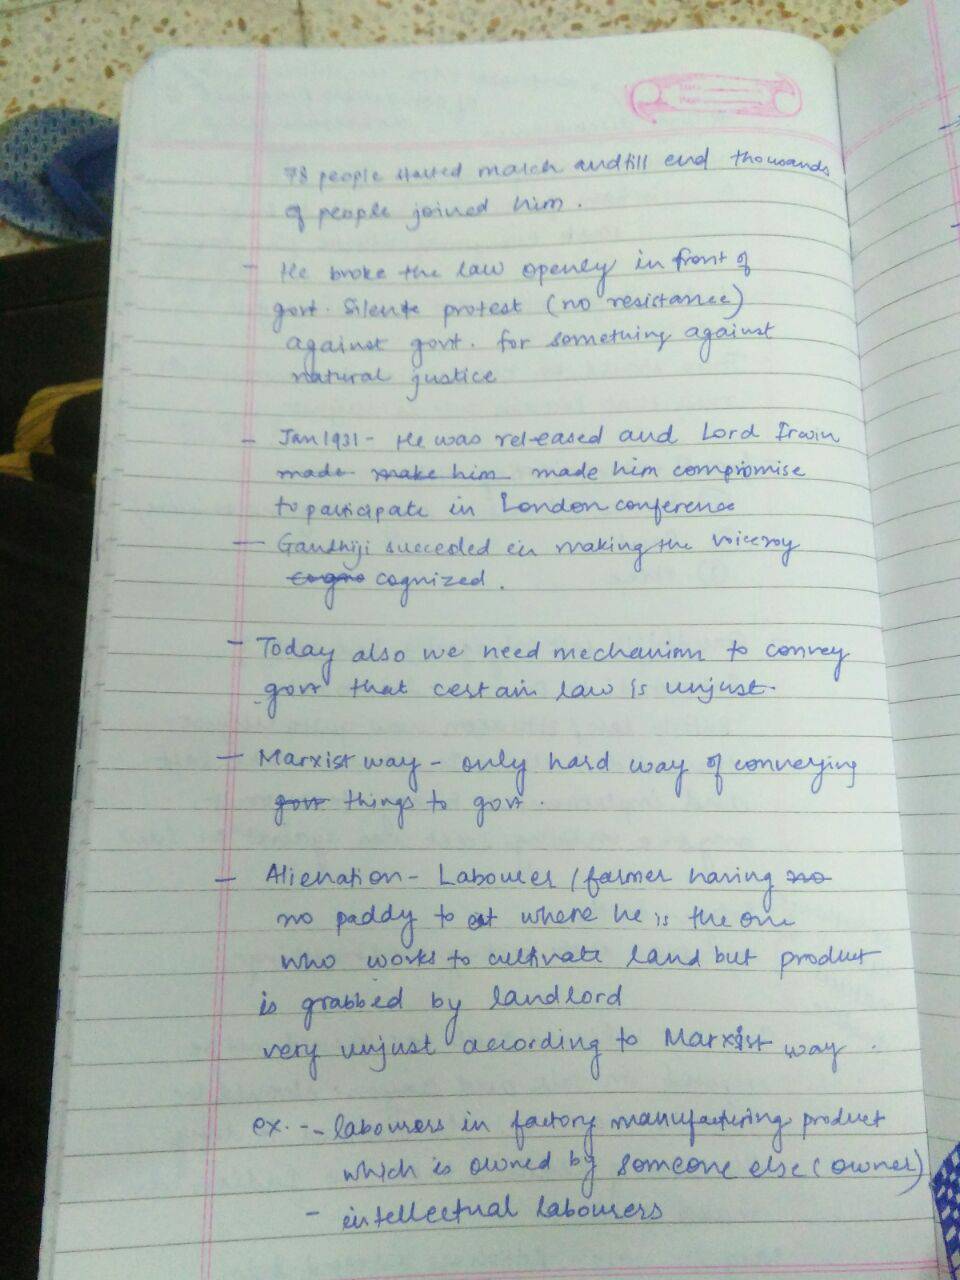 78 people started march and till end thousands
of people joined him.
- He broke the law openly in front of
govt. Silente protest (no resistance)
against govt. for something against
natural justice
- Jan 1931 - He was released and Lord Irwin
made make him made him compromise
to participate in London conference
- Gandhiji succeeded in making the voiceroy
cogno cognized.
- Today also we need mechanism to convey
govt that certain law is unjust.
- Marxist way - only hard way of conveying
govt things to govt.
- Alienation - Labourer / farmer having no
no paddy to eat where he is the one
who works to cultivate land but product
is grabbed by landlord
very unjust according to Marxist way.
ex. -- labourers in factory manufacturing product
which is owned by someone else (owner)
- intellectual labourers